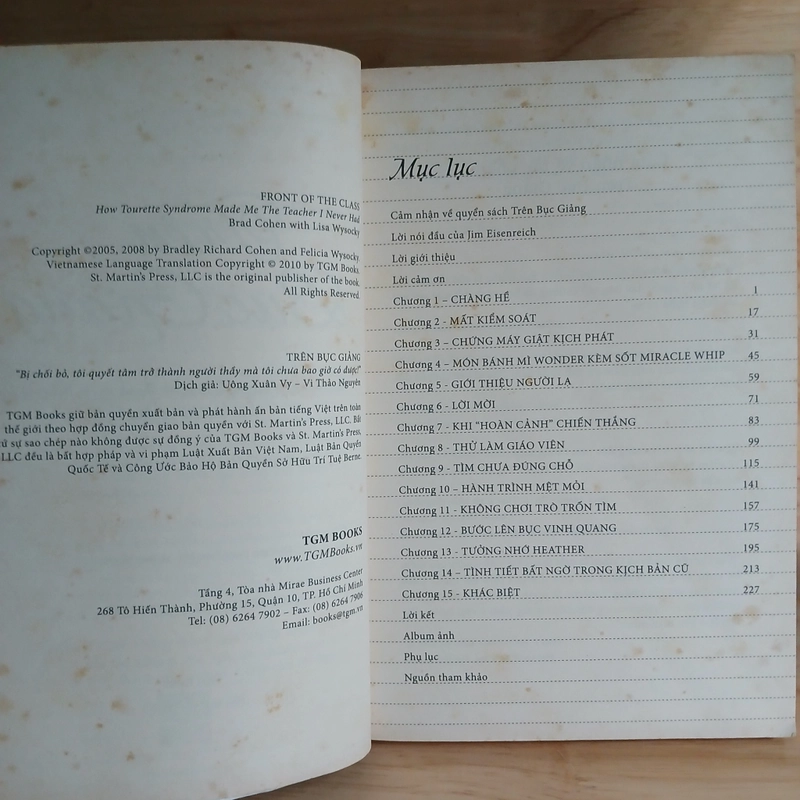 FRONT OF THE CLASS
How Tourette Syndrome Made Me The Teacher I Never Had
Brad Cohen with Lisa Wysocky
Copyright ©2005, 2008 by Bradley Richard Cohen and Felicia Wysocky.
Vietnamese Language Translation Copyright © 2010 by TGM Books.
St. Martin's Press, LLC is the original publisher of the book.
All Rights Reserved.
TRÊN BỤC GIẢNG
"Bị chối bỏ, tôi quyết tâm trở thành người thầy mà tôi chưa bao giờ có được!"
Dịch giả: Uông Xuân Vy – Vi Thảo Nguyên
TGM Books giữ bản quyền xuất bản và phát hành ấn bản tiếng Việt trên toàn
thế giới theo hợp đồng chuyển giao bản quyền với St. Martin's Press, LLC. Bất
cứ sự sao chép nào không được sự đồng ý của TGM Books và St. Martin's Press,
LLC đều là bất hợp pháp và vi phạm Luật Xuất Bản Việt Nam, Luật Bản Quyền
Quốc Tế và Công Ước Bảo Hộ Bản Quyền Sở Hữu Trí Tuệ Berne.
TGM BOOKS
www.TGMBooks.vn
Tầng 4, Tòa nhà Mirae Business Center
268 Tô Hiến Thành, Phường 15, Quận 10, TP. Hồ Chí Minh
Tel: (08) 6264 7902 – Fax: (08) 6264 7906
Email: books@tgm.vn
Mục lục
Cảm nhận về quyển sách Trên Bục Giảng
Lời nói đầu của Jim Eisenreich
Lời giới thiệu
Lời cảm ơn
Chương 1 – CHÀNG HỀ 1
Chương 2 - MẤT KIỂM SOÁT 17
Chương 3 – CHỨNG MÁY GIẬT KỊCH PHÁT 31
Chương 4 – MÓN BÁNH MÌ WONDER KÈM SỐT MIRACLE WHIP 45
Chương 5 - GIỚI THIỆU NGƯỜI LẠ 59
Chương 6 - LỜI MỜI 71
Chương 7 - KHI "HOÀN CẢNH" CHIẾN THẮNG 83
Chương 8 - THỬ LÀM GIÁO VIÊN 99
Chương 9 - TÌM CHƯA ĐÚNG CHỖ 115
Chương 10 – HÀNH TRÌNH MỆT MỎI 141
Chương 11 - KHÔNG CHƠI TRÒ TRỐN TÌM 157
Chương 12 - BƯỚC LÊN BỤC VINH QUANG 175
Chương 13 - TƯỞNG NHỚ HEATHER 195
Chương 14 – TÌNH TIẾT BẤT NGỜ TRONG KỊCH BẢN CŨ 213
Chương 15 - KHÁC BIỆT 227
Lời kết
Album ảnh
Phụ lục
Nguồn tham khảo